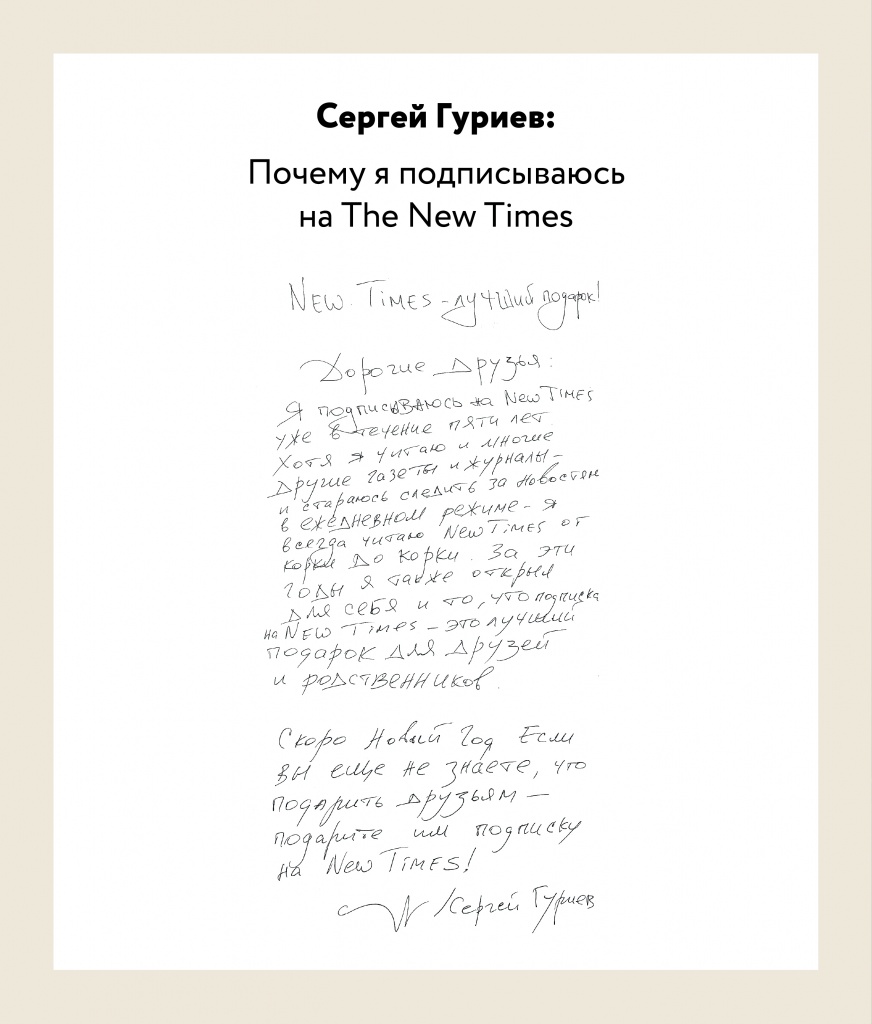 Сергей Гуриев:
Почему я подписываюсь
на The New Times
New Times - лучший подарок!
Дорогие друзья:
Я подписываюсь на New Times
уже в течение пяти лет
Хотя я читаю и многие
другие газеты и журналы -
и стараюсь следить за новостями
в ежедневном режиме - я
всегда читаю New Times от
корки до корки. За эти
годы я также открыл
для себя и то, что подписка
на New Times - это лучший
подарок для друзей
и родственников.
Скоро Новый Год Если
вы еще не знаете, что
подарить друзьям -
подарите им подписку
на New Times!
/Сергей Гуриев